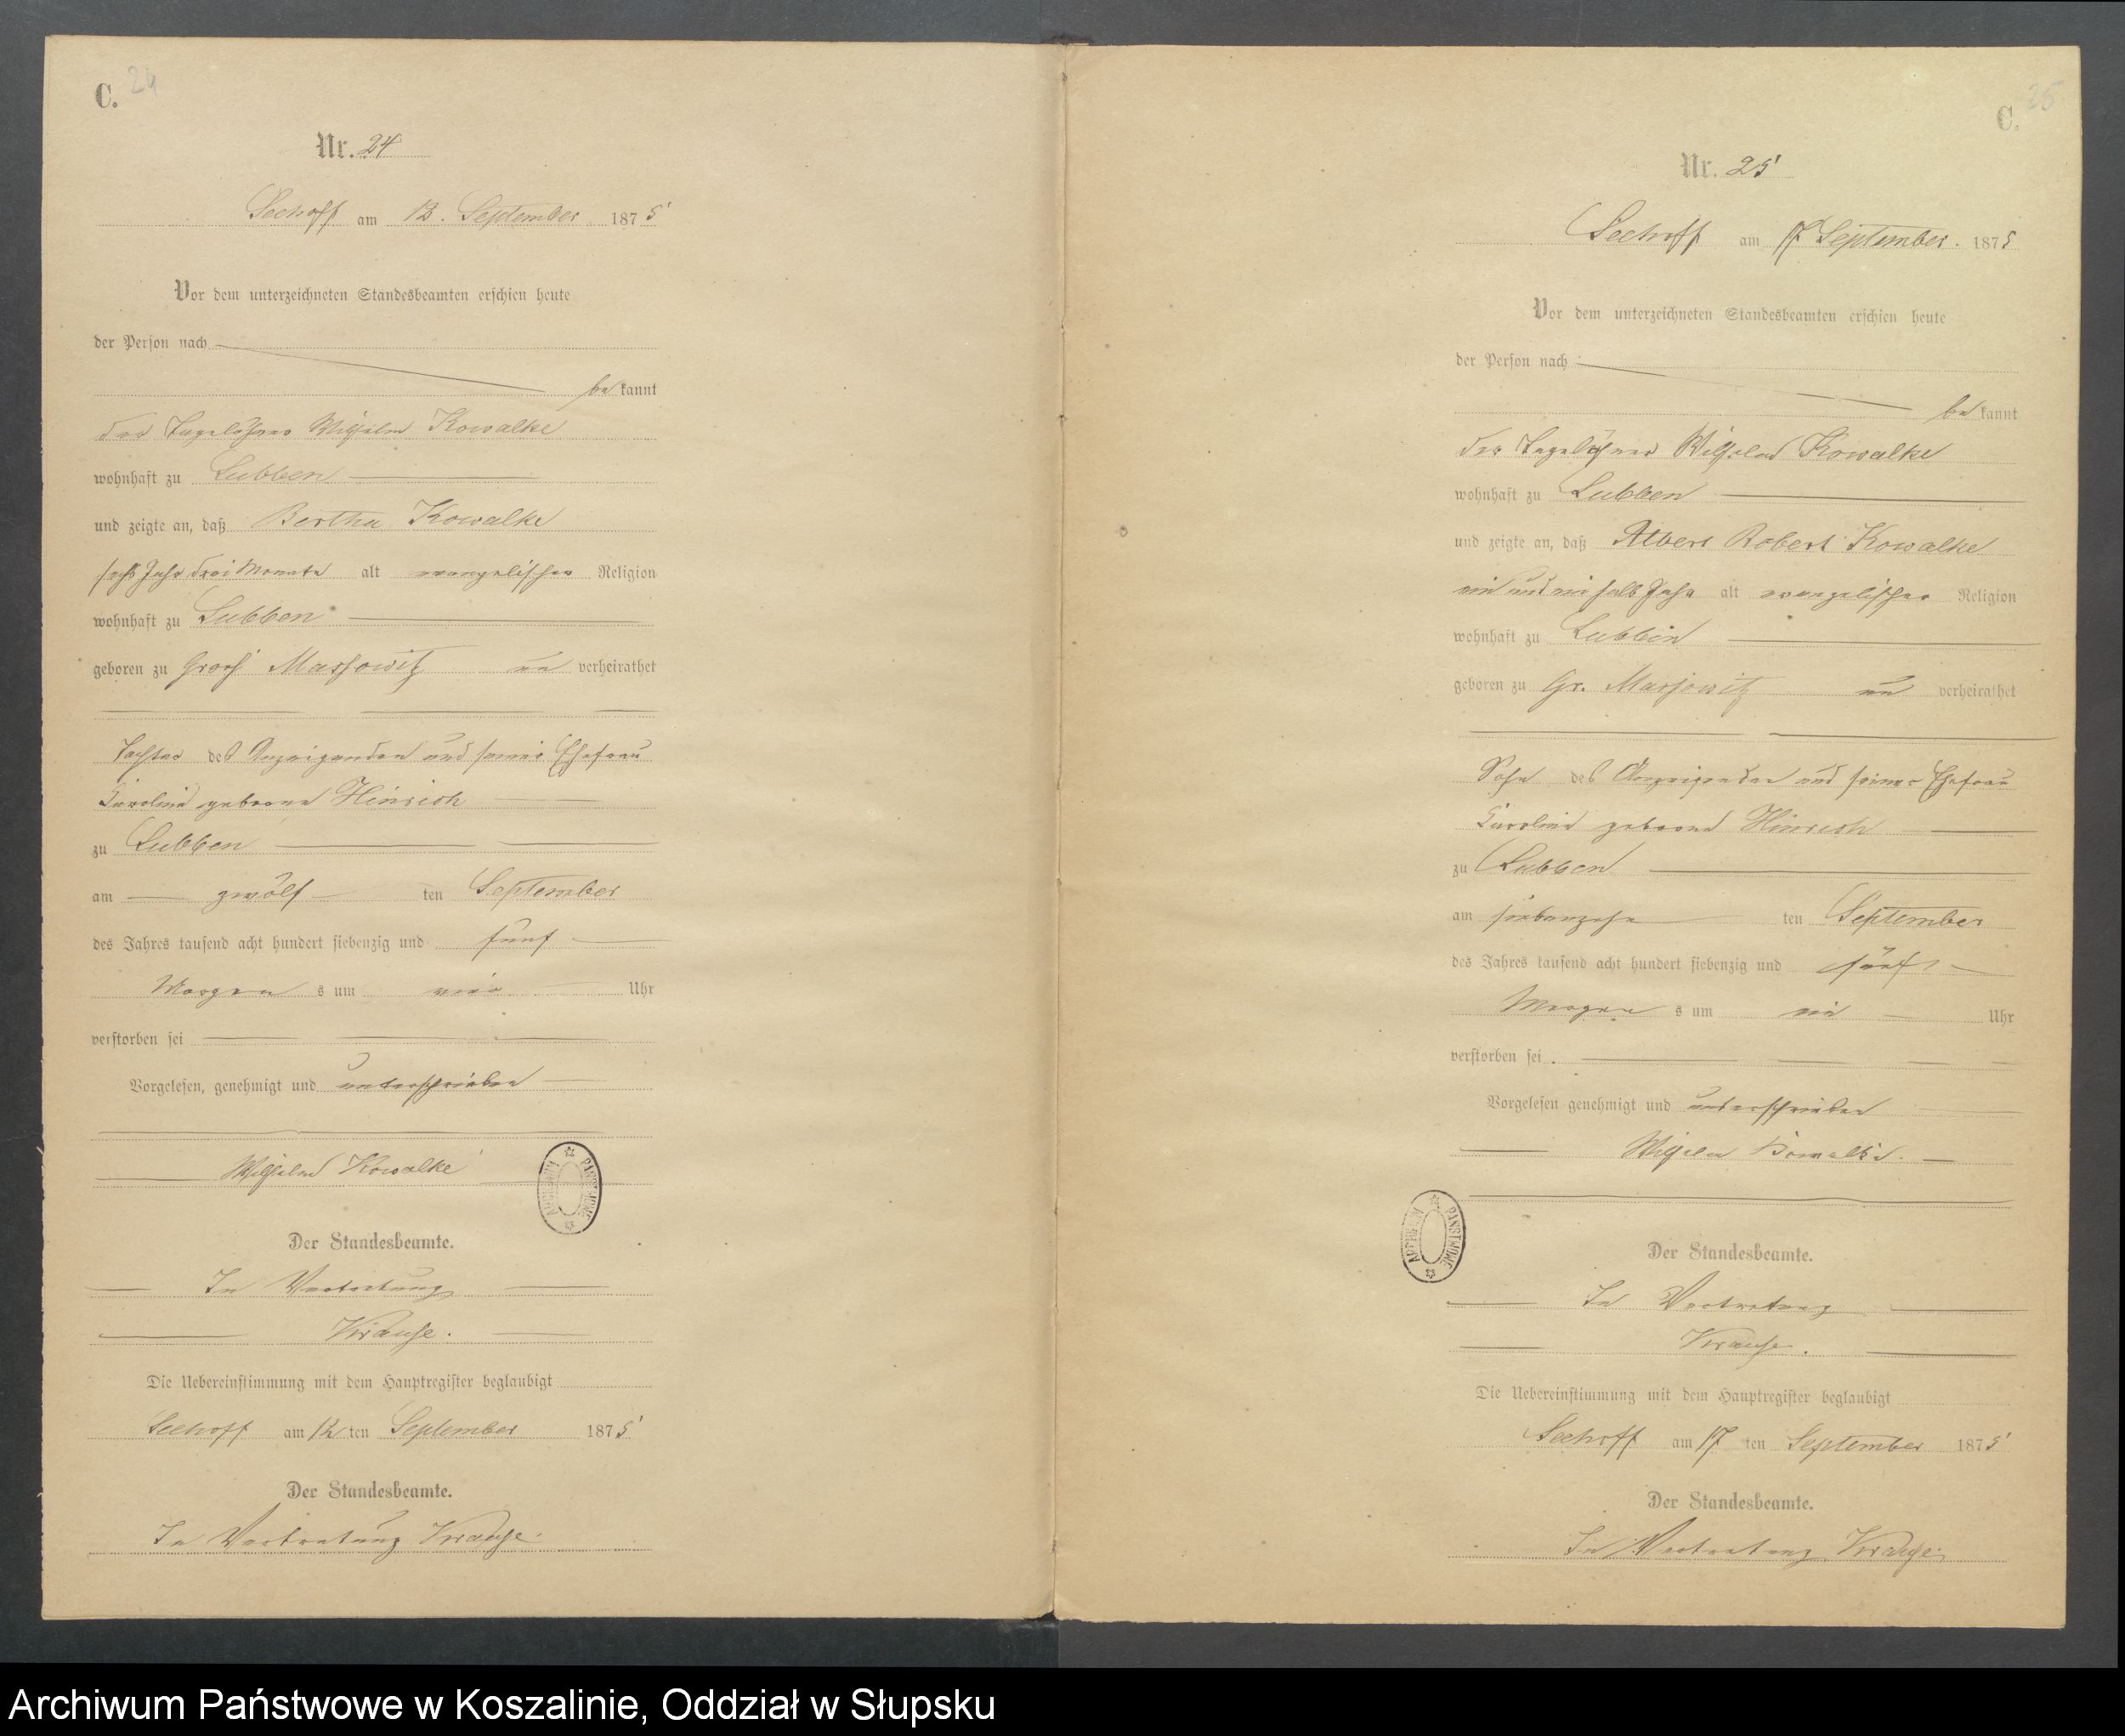 C. 24
Nr. 24
Seehoff am 12. September 1875
Vor dem unterzeichneten Standesbeamten erschien heute
der Person nach
be kannt
der Tagelöhner Wilhelm Kowalke
wohnhaft zu Lubben
und zeigte an, daß Bertha Kowalke
sechs Jahr drei Monate alt evangelischer Religion
wohnhaft zu Lubben
geboren zu Gross Massowitz un verheirathet
Tochter des Anzeigenden und seiner Ehefrau
Karoline geborene Hinrich
zu Lubben
am zwölf ten September
des Jahres tausend acht hundert siebenzig und fünf
Morgen s um vier Uhr
verstorben sei
Vorgelesen, genehmigt und unterschrieben
Wilhelm Kowalke
ARCHIWUM PAŃSTWOWE
Der Standesbeamte.
In Vertretung
Krause.
Die Uebereinstimmung mit dem Hauptregister beglaubigt
Seehoff am 12 ten September 1875
Der Standesbeamte.
In Vertretung Krause.
C. 25
Nr. 25
Seehoff am 17 September. 1875
Vor dem unterzeichneten Standesbeamten erschien heute
der Person nach
be kannt
der Tagelöhner Wilhelm Kowalke
wohnhaft zu Lubben
und zeigte an, daß Albert Robert Kowalke
ein und ein halb Jahr alt evangelischer Religion
wohnhaft zu Lubben
geboren zu Gr. Massowitz un verheirathet
Sohn des Anzeigenden und seiner Ehefrau
Karoline geborene Hinrich
zu Lubben
am siebenzehn ten September
des Jahres tausend acht hundert siebenzig und fünf
Morgen s um ein Uhr
verstorben sei.
Vorgelesen genehmigt und unterschrieben
Wilhelm Kowalke.
ARCHIWUM PAŃSTWOWE
Der Standesbeamte.
In Vertretung
Krause.
Die Uebereinstimmung mit dem Hauptregister beglaubigt
Seehoff am 17 ten September 1875
Der Standesbeamte.
In Vertretung Krause.
Archiwum Państwowe w Koszalinie, Oddział w Słupsku